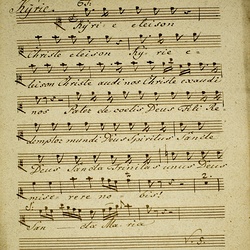 Kyrie.
Kyri-e eleison
Christe eleison Kyrie e-
leison Christe audi nos Christe exaudi
nos Pater de coelis Deus Fili Re-
demptor mundi Deus Spiritus Sancte
Deus Sancta Trinitas unus Deus
miserere nobis!
San-cta Maria
V. S.